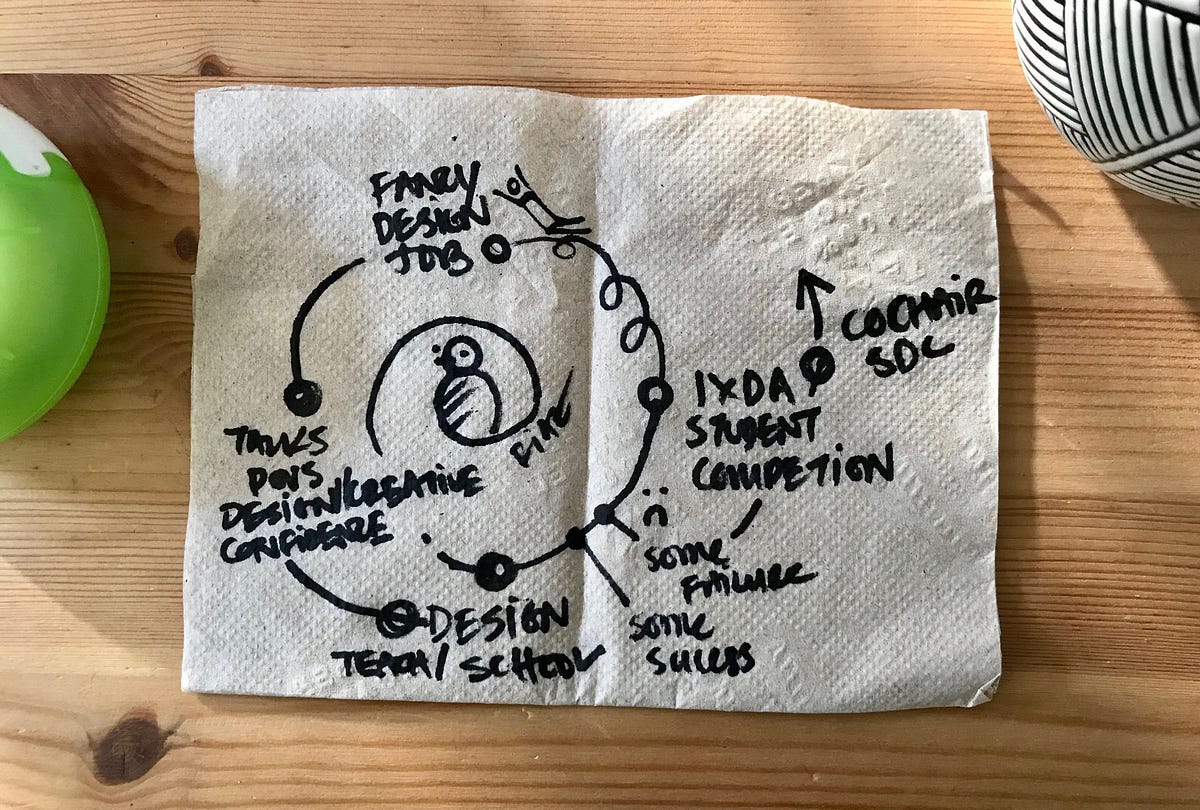 FANCY
DESIGN
JOB
COCHAIR
SDC
IXDA
STUDENT
COMPETION
TALKS
DESIGN/CREATIVE
CONFIDENCE
SOME
FAILURE
DESIGN
TEACH/ SCHOOL
SOME
SUCCESS